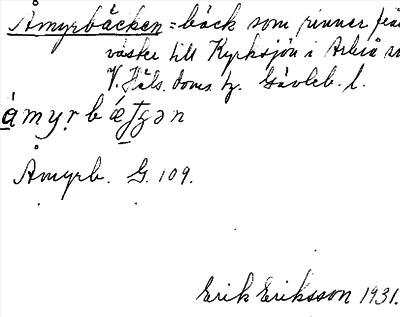 Åmyrbäcken = bäck som rinner från
väster till Kyrksjön i Arbrå sn
V. Häls. doms. hz. Gävleb. l.
Åmyrb. G. 109.
Erik Eriksson 1931.